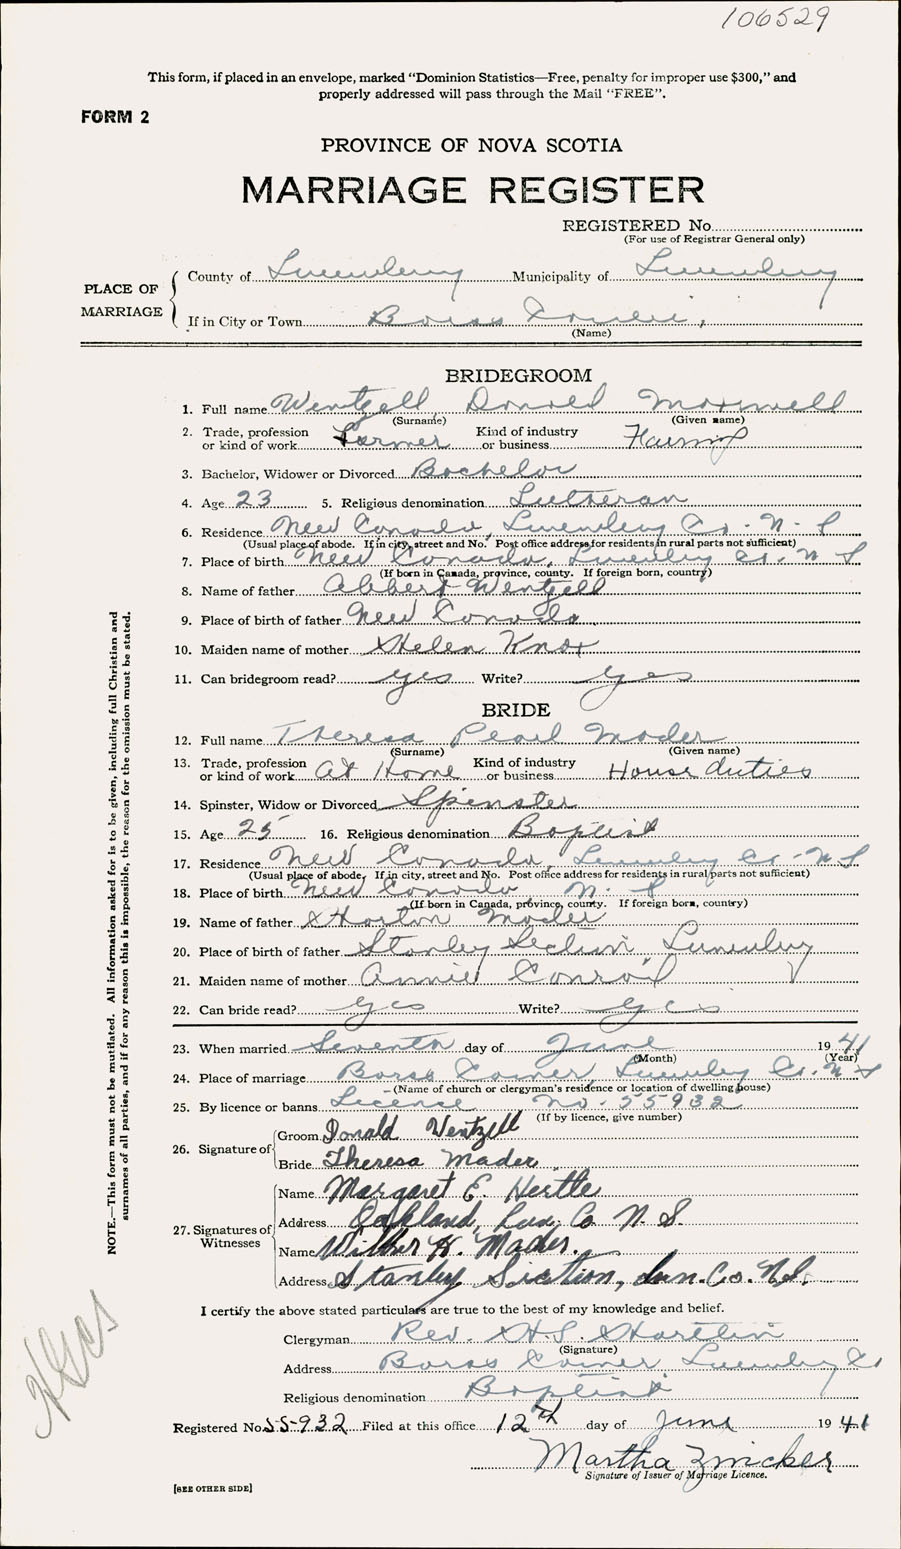 106529
This form, if placed in an envelope, marked “Dominion Statistics—Free, penalty for improper use $300,” and
properly addressed will pass through the Mail “FREE”.
FORM 2
PROVINCE OF NOVA SCOTIA
MARRIAGE REGISTER
REGISTERED No.
(For use of Registrar General only)
PLACE OF MARRIAGE
County of Lunenburg Municipality of Lunenburg
If in City or Town Barss Corner,
(Name)
BRIDEGROOM
1. Full name Wentzell Donald Maxwell
(Surname) (Given name)
2. Trade, profession or kind of work Farmer Kind of industry or business Farming
3. Bachelor, Widower or Divorced Bachelor
4. Age 23 5. Religious denomination Lutheran
6. Residence New Canada, Lunenburg Co. N. S
(Usual place of abode. If in city, street and No. Post office address for residents in rural parts not sufficient)
7. Place of birth New Canada, Lunenburg Co. N S
(If born in Canada, province, county. If foreign born, country)
8. Name of father Albert Wentzell
9. Place of birth of father New Canada.
10. Maiden name of mother Helen Knox
11. Can bridegroom read? yes Write? yes
BRIDE
12. Full name Theresa Pearl Mader
(Surname) (Given name)
13. Trade, profession or kind of work At Home Kind of industry or business House duties
14. Spinster, Widow or Divorced Spinster
15. Age 25 16. Religious denomination Baptist
17. Residence New Canada, Lunenburg Co - N S
(Usual place of abode. If in city, street and No. Post office address for residents in rural parts not sufficient)
18. Place of birth New Canada N. S
(If born in Canada, province, county. If foreign born, country)
19. Name of father Harton Mader
20. Place of birth of father Stanley Section Lunenburg
21. Maiden name of mother Annie Conrad
22. Can bride read? yes Write? yes
23. When married Seventh day of June 1941
(Month) (Year)
24. Place of marriage Barss Corner Lunenburg Co. N S
(Name of church or clergyman's residence or location of dwelling house)
25. By licence or banns License No. 55932
(If by licence, give number)
26. Signature of
Groom Donald Wentzell
Bride Theresa Mader.
27. Signatures of Witnesses
Name Margaret E. Hertle
Address Oakland, Lun. Co N. S.
Name Wilber H. Mader.
Address Stanley Siction, Lun. Co. N.S.
I certify the above stated particulars are true to the best of my knowledge and belief.
Clergyman Rev. H. S. Hartlin
(Signature)
Address Barss Corner Lunenburg Co
Religious denomination Baptist
Registered No. 55-932 Filed at this office 12th day of June 1941
Martha Zwicker
Signature of Issuer of Marriage Licence.
[SEE OTHER SIDE]
NOTE.—This form must not be mutilated. All information asked for is to be given, including full Christian and
surnames of all parties, and if for any reason this is impossible, the reason for the omission must be stated.